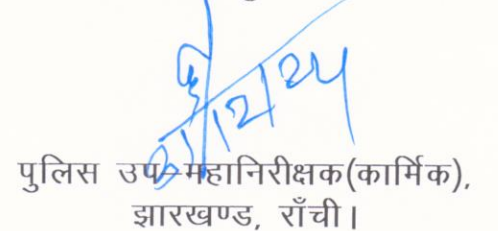 पुलिस उप-महानिरीक्षक(कार्मिक),
झारखण्ड, राँची।